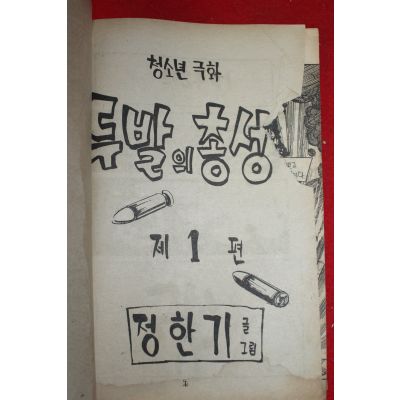 청소년 극화
두발의 총성
제 1 편
정한기 글 그림